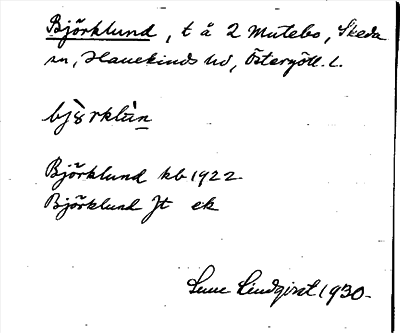 Björklund, t å 2 Mutebo, Skeda
sn, Hanekinds hd, Östergötl. L.
bjø̀rklùn
Björklund kb 1922
Björklund Jt ek
Sune Lindqvist 1930.